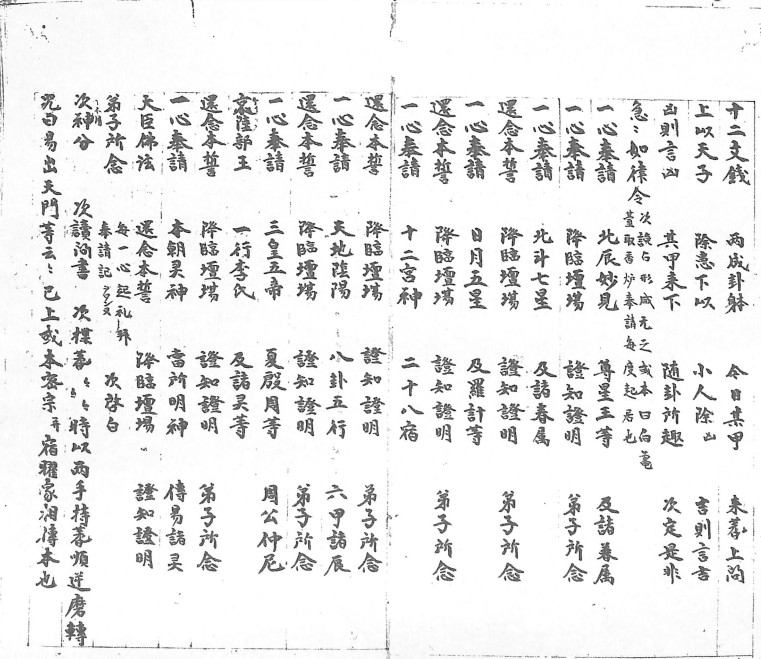 十二支錢 兩成卦躰 今日某甲 來蓍上問
上以天子 除患下以 小人除凶 吉則言吉
凶則言凶 某甲来下 隨卦所趣 次定是非
急〻如律令 次談占形成无之或本曰白 置取香炉奉請每度起居也
一心奉請 北辰妙見 尊星王等 及諸眷属
一心奉請 降臨壇場 證知證明 弟子所念
一心奉請 北斗七星 及諸眷属
還念本誓 降臨壇場 證知證明 弟子所念
一心奉請 日月五星 及羅計等
還念本誓 降臨壇場 證知證明 弟子所念
一心奉請 十二宮神 二十八宿
還念本誓 降臨壇場 證知證明 弟子所念
一心奉請 天地陰陽 八卦五行 六甲諸辰
還念本誓 降臨壇場 證知證明 弟子所念
一心奉請 三皇五帝 夏殷周等 周公仲尼
京陵郭王 一行李氏 及諸灵等
還念本誓 降臨壇場 證知證明 弟子所念
一心奉請 本朝灵神 當所明神 傳易諸灵
大臣佛法 還念本誓 降臨壇場 證知證明
弟子所念 每一心起礼一拜 奉請記 次啓白
次神分 次讀祈書 次揲蓍〻〻時以兩手持蓍順逆磨轉
咒曰易出天門等云〻已上或本密宗并宿曜家相傳本也